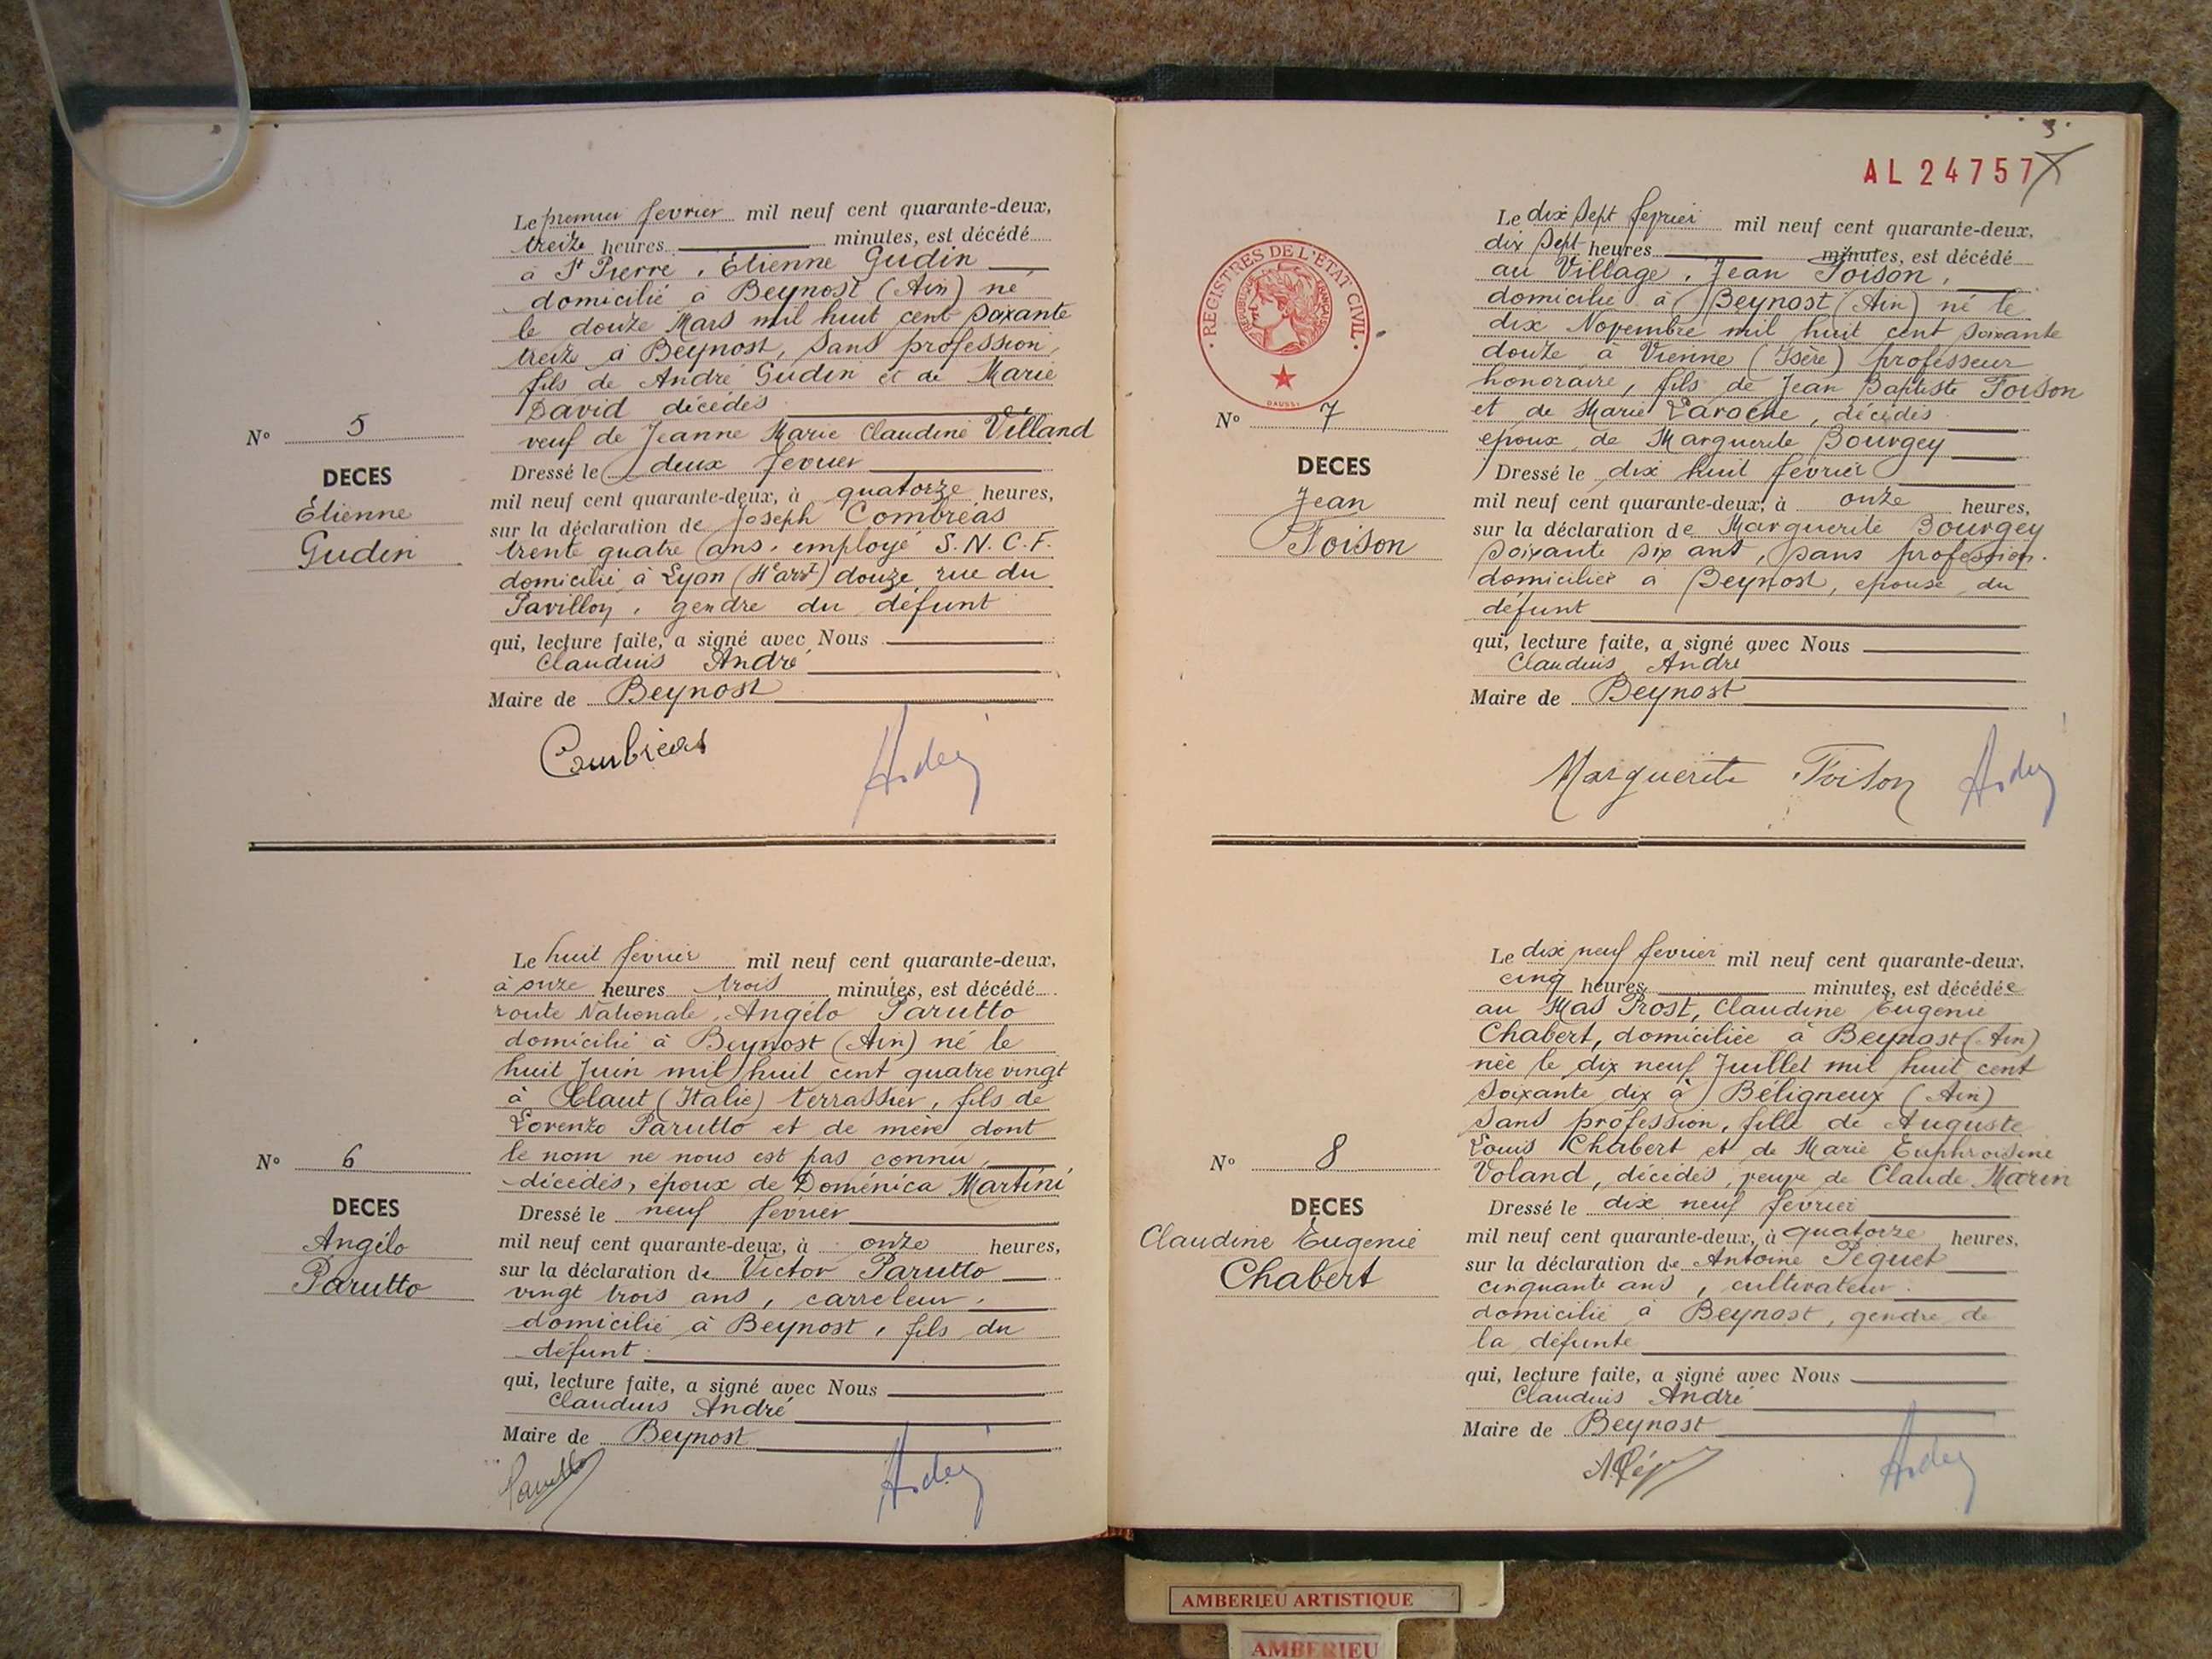 Le premier fevrier mil neuf cent quarante-deux,
treize heures minutes, est décédé
à St Pierre, Etienne Gudin
domicilié à Beynost (Ain) né
le douze Mars mil huit cent soixante
treize à Beynost, sans profession,
fils de André Gudin et de Marie
David décédés
veuf de Jeanne Marie Claudine Villand
N° 5
DECES
Etienne
Gudin
Dressé le deux fevrier
mil neuf cent quarante-deux, à quatorze heures,
sur la déclaration de Joseph Combréas
trente quatre ans, employé S.N.C.F.
domicilié à Lyon douze, rue du
Pavillon, gendre du défunt
qui, lecture faite, a signé avec Nous
Claudius André
Maire de Beynost
Combréas
Le huit février mil neuf cent quarante-deux,
à onze heures trois minutes, est décédé
route Nationale, Angélo Parutto
domicilié à Beynost (Ain) né le
huit Juin mil huit cent quatre vingt
à Claut (Italie) terrassier, fils de
Lorenzo Parutto et de mère dont
le nom ne nous est pas connu,
décédés, époux de Doménica Martini
N° 6
DECES
Angélo
Parutto
Dressé le neuf février
mil neuf cent quarante-deux, à onze heures,
sur la déclaration de Victor Parutto
vingt trois ans, carreleur,
domicilié à Beynost, fils du
défunt.
qui, lecture faite, a signé avec Nous
Claudius André
Maire de Beynost
Parutto
3
AL 24757
REGISTRES DE L'ÉTAT CIVIL
RÉPUBLIQUE FRANÇAISE
DAUSSI
Le dix sept fevrier mil neuf cent quarante-deux,
dix sept heures minutes, est décédé
au Village, Jean Foison,
domicilié à Beynost (Ain) né le
dix Novembre mil huit cent soixante
douze à Vienne (Isère) professeur
honoraire, fils de Jean Baptiste Foison
et de Marie Laroche, décédés
époux de Marguerite Bourgey
N° 7
DECES
Jean
Foison
Dressé le dix huit février
mil neuf cent quarante-deux, à onze heures,
sur la déclaration de Marguerite Bourgey
soixante six ans, sans profession.
domiciliée à Beynost, epouse du
défunt
qui, lecture faite, a signé avec Nous
Claudius André
Maire de Beynost
Marguerite Foison
Le dix neuf fevrier mil neuf cent quarante-deux,
cinq heures minutes, est décédée
au Mas Prost, Claudine Eugenie
Chabert, domiciliée à Beynost (Ain)
née le dix neuf Juillet mil huit cent
soixante dix à Béligneux (Ain)
sans profession, fille de Auguste
Louis Chabert et de Marie Euphroisine
Voland, décédés, veuve de Claude Marin
N° 8
DECES
Claudine Eugenie
Chabert
Dressé le dix neuf février
mil neuf cent quarante-deux, à quatorze heures,
sur la déclaration de Antoine Péquet
cinquante ans, cultivateur.
domicilié à Beynost, gendre de
la défunte
qui, lecture faite, a signé avec Nous
Claudius André
Maire de Beynost
AMBERIEU ARTISTIQUE
AMBERIEU